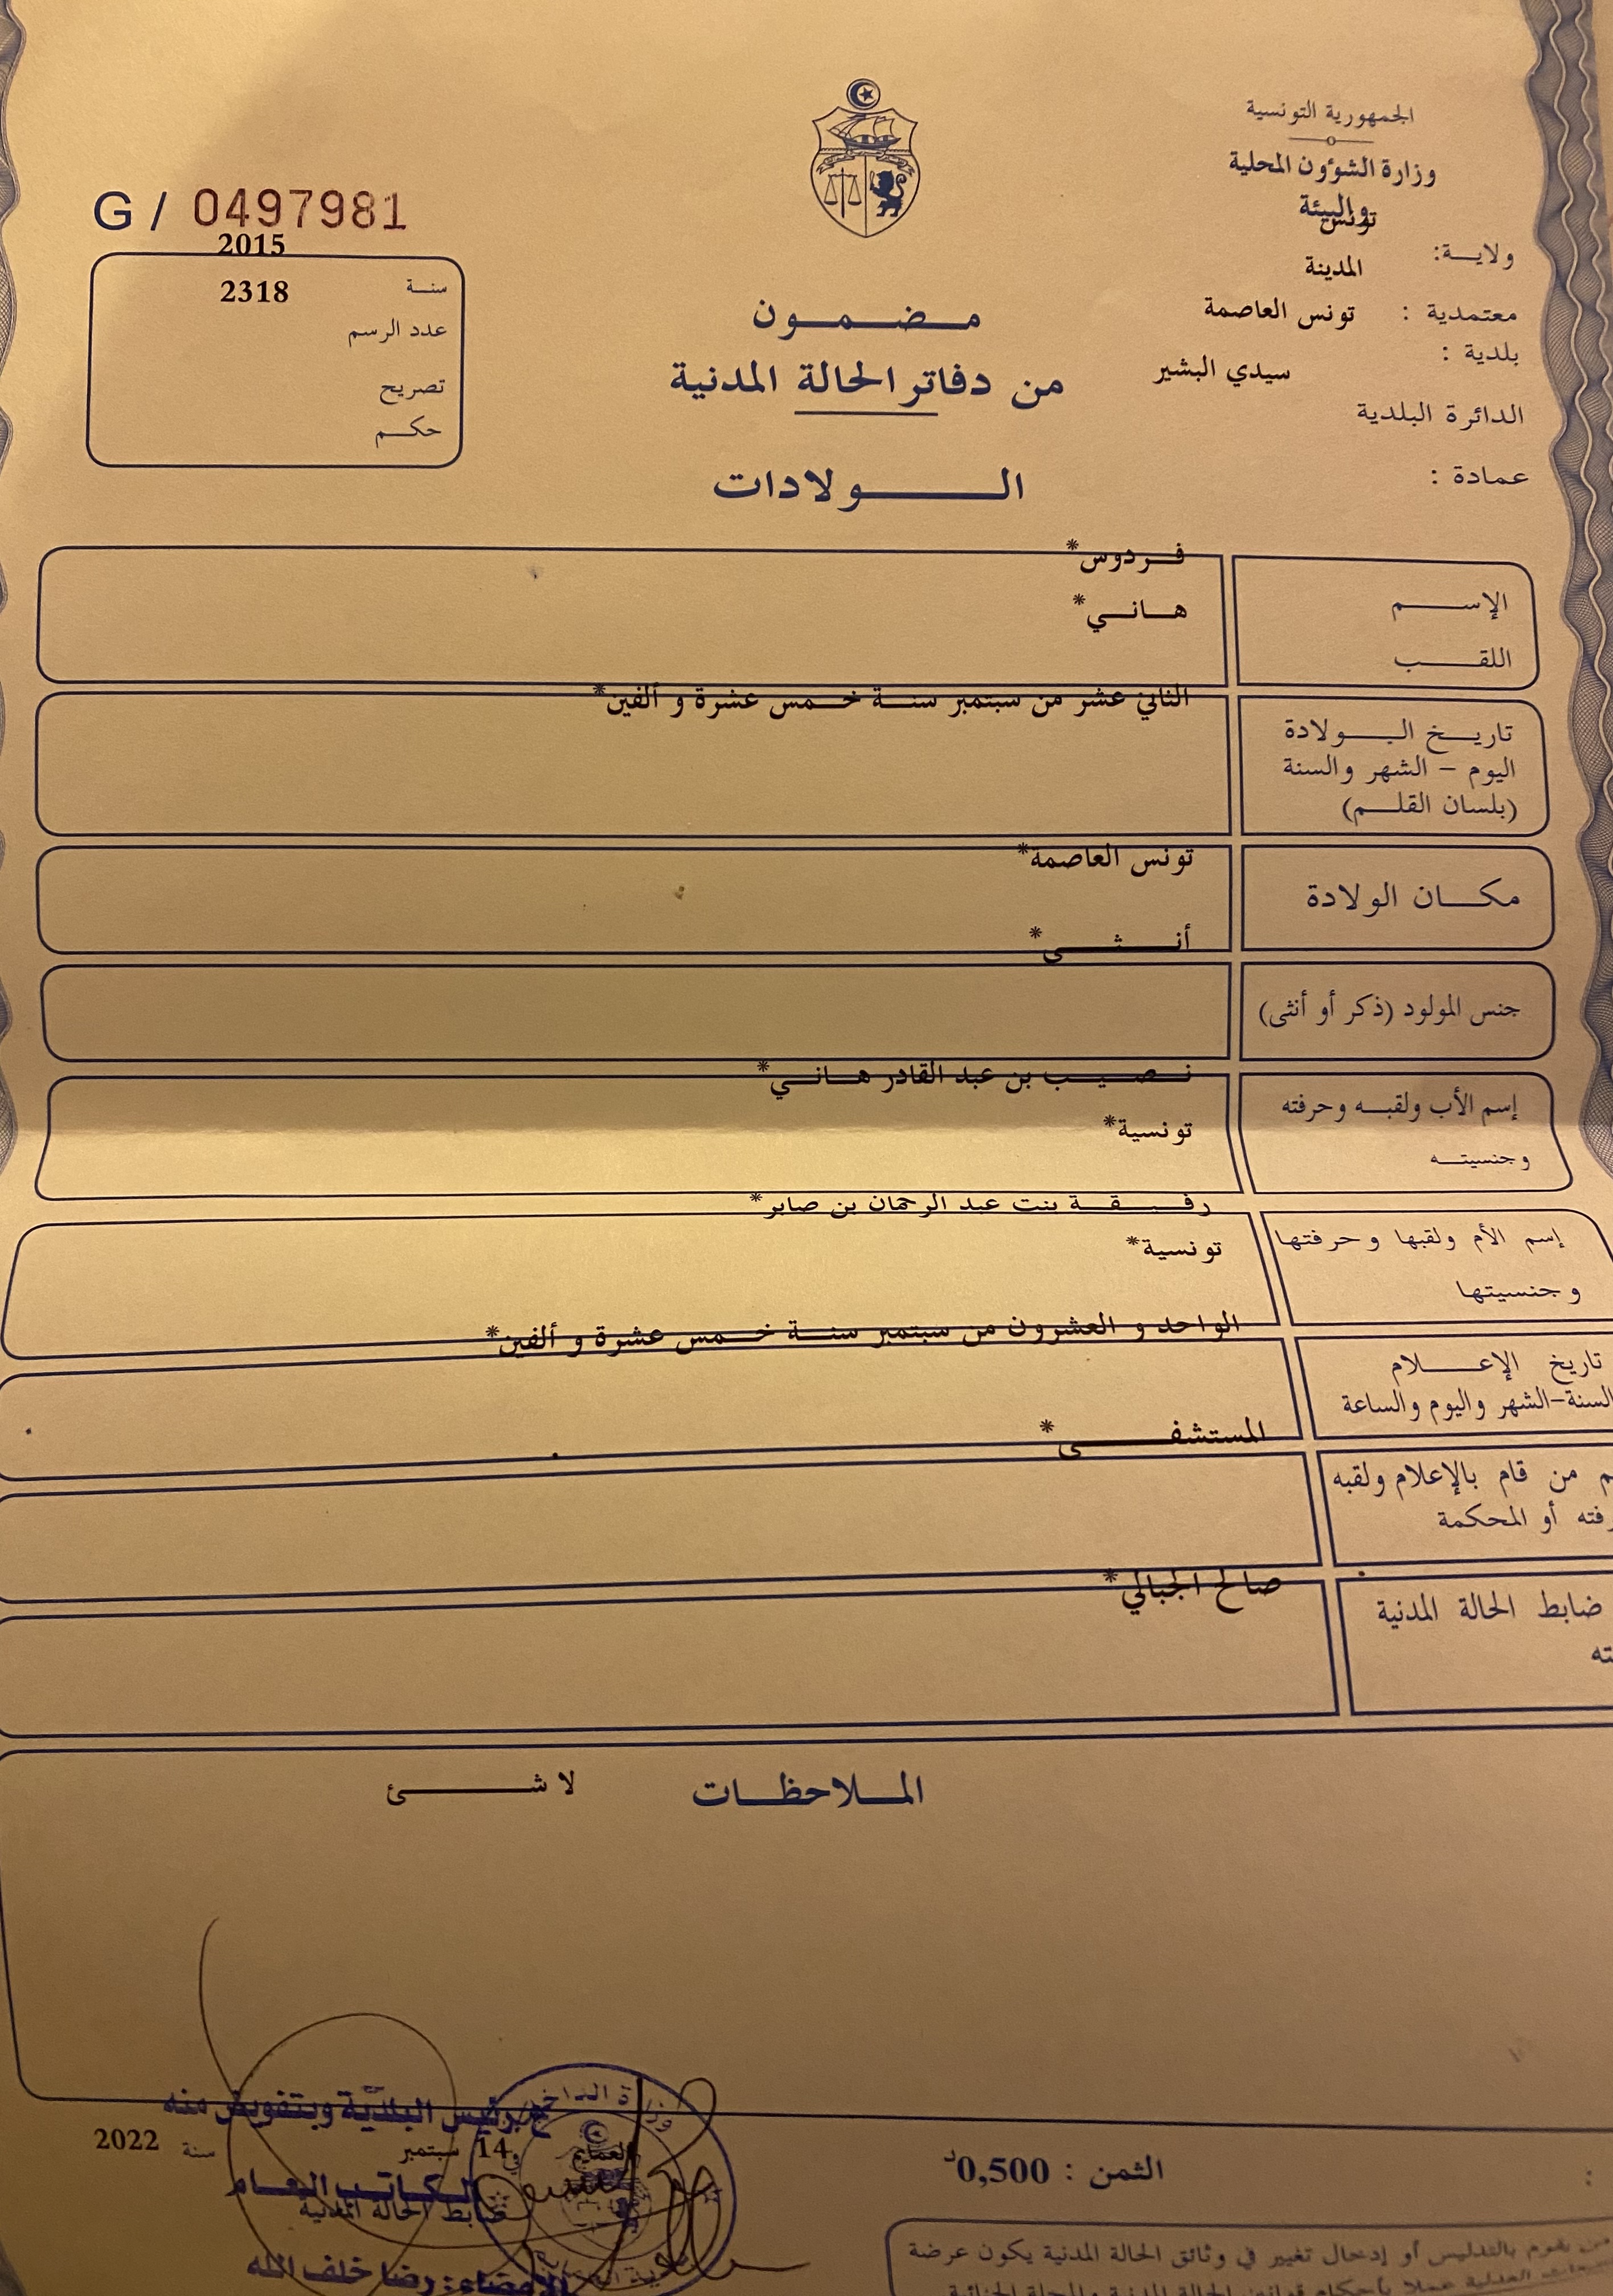 الجمهورية التونسية
وزارة الشؤون المحلية
والبيئة
ولاية: تونس
المدينة
معتمدية : تونس العاصمة
بلدية :
سيدي البشير
الدائرة البلدية
عمادة :
G / 0497981
2015
سنة 2318
عدد الرسم
تصريح
حكم
مضمون
من دفاتر الحالة المدنية
الولادات
فردوس*
الإسم
هاني*
اللقب
الثاني عشر من سبتمبر سنة خمس عشرة و ألفين*
تاريخ الولادة
اليوم – الشهر والسنة
(بلسان القلم)
تونس العاصمة*
مكان الولادة
أنثى*
جنس المولود (ذكر أو أنثى)
نصيب بن عبد القادر هاني*
إسم الأب ولقبه وحرفته
تونسية*
وجنسيته
رفيقة بنت عبد الرحمان بن صابر*
إسم الأم ولقبها وحرفتها
تونسية*
وجنسيتها
الواحد و العشرون من سبتمبر سنة خمس عشرة و ألفين*
تاريخ الإعلام
السنة-الشهر واليوم والساعة
المستشفى*
من قام بالإعلام ولقبه
أو المحكمة
صالح الجبالي*
ضابط الحالة المدنية
الملاحظات لا شئ
عن رئيس البلدية وبتفويض منه
و 14 سبتمبر سنة 2022
الكاتب العام
ضابط الحالة المدنية
الإمضاء: رضا خلف الله
الثمن : 0,500د
من يقوم بالتدليس أو إدخال تغيير في وثائق الحالة المدنية يكون عرضة